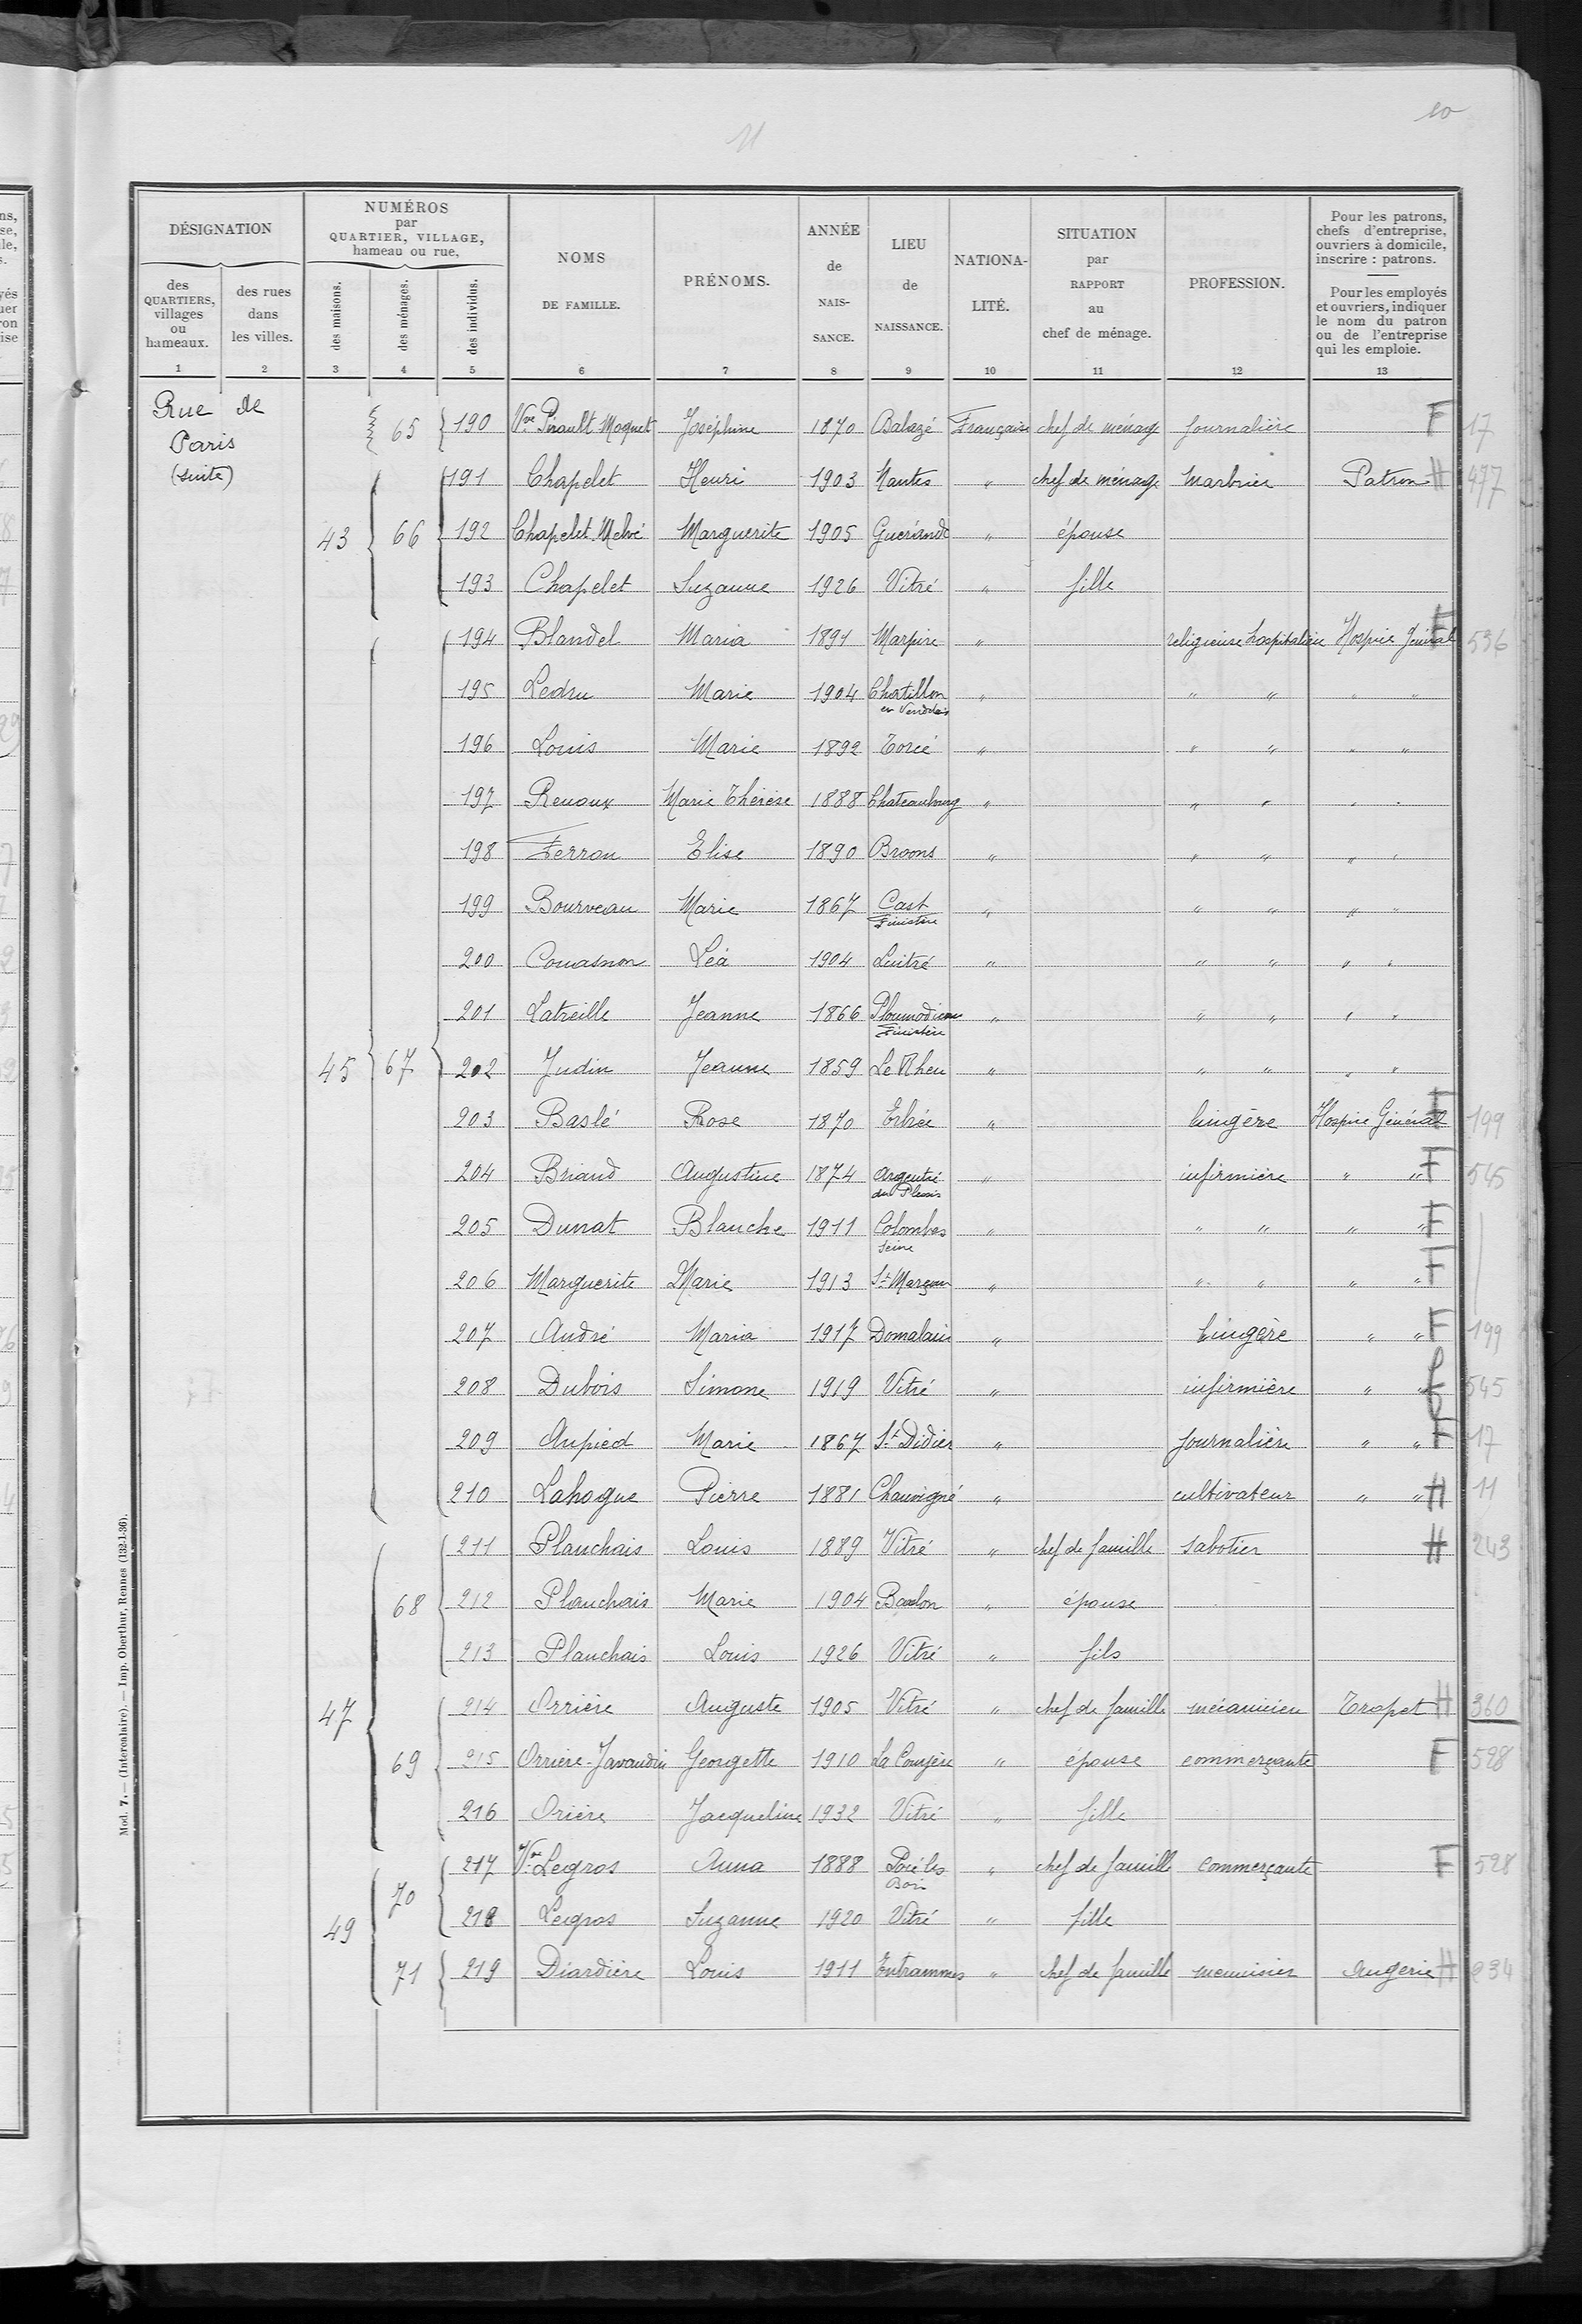 10
11
DÉSIGNATION
des QUARTIERS, villages ou hameaux.
des rues dans les villes.
NUMÉROS par QUARTIER, VILLAGE, hameau ou rue,
des maisons.
des ménages.
des individus.
NOMS DE FAMILLE.
PRÉNOMS.
ANNÉE de NAIS-SANCE.
LIEU de NAISSANCE.
NATIONA-LITÉ.
SITUATION par RAPPORT au chef de ménage.
PROFESSION.
Pour les patrons, chefs d'entreprise, ouvriers à domicile, inscrire : patrons.
Pour les employés et ouvriers, indiquer le nom du patron ou de l'entreprise qui les emploie.
1 2 3 4 5 6 7 8 9 10 11 12 13
Rue de Paris (suite)
65 190 Vve Pirault Moquet Joséphine 1870 Balazé Française chef de ménage journalière F 17
191 Chapelet Henri 1903 Nantes " chef de ménage marbrier Patron H 477
43 66 192 Chapelet Melvé Marguerite 1905 Guérande " épouse
193 Chapelet Suzanne 1926 Vitré " fille
194 Blandel Maria 1891 Marpire " religieuse hospitalière Hospice Général F 536
195 Ledru Marie 1904 Chatillon en Vendelais " " " " "
196 Louis Marie 1892 Torcé " " " " "
197 Renoux Marie Thérèse 1888 Chateaubourg " " " " "
198 Ferron Elise 1890 Broons " " " " "
199 Bourveau Marie 1867 Cast Finistère " " " " "
200 Couasnon Léa 1904 Luitré " " " " "
201 Latreille Jeanne 1866 Ploumodiern Finistère " " " " "
45 67 202 Judin Jeanne 1859 Le Rheu " " " " "
203 Baslé Rose 1870 Erbrée " lingère Hospice Général F 199
204 Briand Augustine 1874 Argentré du Plessis " infirmière " " F 545
205 Dunat Blanche 1911 Colombes Seine " " " " " F
206 Marguerite Marie 1913 St Marçan " " " " " F
207 André Maria 1917 Domalain " lingère " " F 199
208 Dubois Simone 1919 Vitré " infirmière " " F 545
209 Aupied Marie 1867 St Didier " journalière " " F 17
210 Lahogue Pierre 1881 Chauvigné " cultivateur " " H 11
211 Planchais Louis 1889 Vitré " chef de famille sabotier H 243
68 212 Planchais Marie 1904 Baalon " épouse
213 Planchais Louis 1926 Vitré " fils
47 214 Orrière Auguste 1905 Vitré " chef de famille mécanicien Tropet H 360
69 215 Orrière-Javaudin Georgette 1910 La Couyère " épouse commerçante F 598
216 Orière Jacqueline 1932 Vitré " fille
217 Vve Legros Anna 1888 Pocé les Bois " chef de famille commerçante F 598
70
49 218 Legros Suzanne 1920 Vitré " fille
71 219 Diardière Louis 1911 Entrammes " chef de famille menuisier Augerie H 234
Mod. 7. — (Intercalaire). — Imp. Oberthur, Rennes (132-1-36).